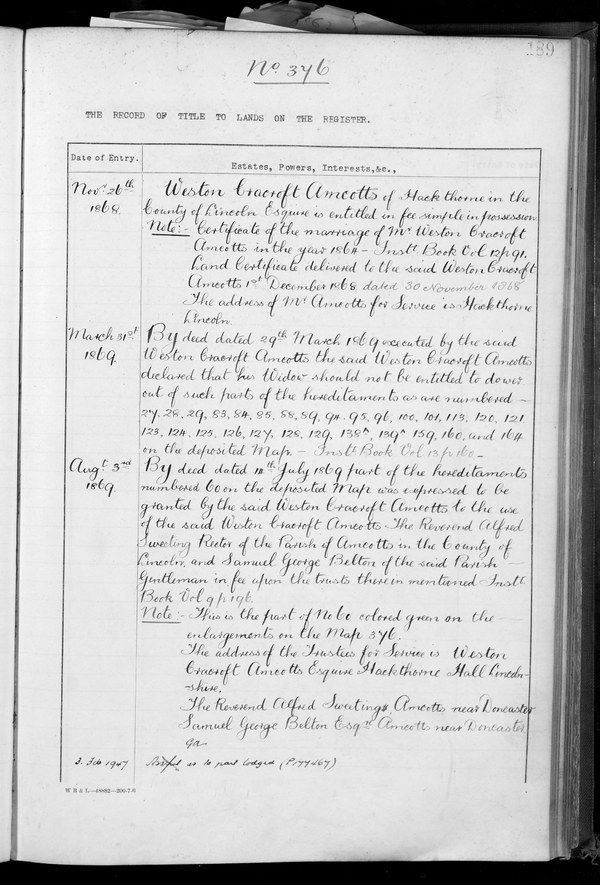 189
No. 376
THE RECORD OF TITLE TO LANDS ON THE REGISTER.
Date of Entry.
Estates, Powers, Interests,&c.,
Novr 26th
1868.
Weston Cracroft Amcotts of Hackthorne in the
County of Lincoln Esquire is entitled in fee simple in possession
Note:- Certificate of the marriage of Mr Weston Cracroft
Amcotts in the year 1864 - Instt Book Vol 12 p 91.
Land Certificate delivered to the said Weston Cracroft
Amcotts 1st December 1868 dated 30 November 1868
The address of Mr Amcotts for Service is Hackthorne
Lincoln.
March 31st
1869.
By deed dated 29th March 1869 executed by the said
Weston Cracroft Amcotts the said Weston Cracroft Amcotts
declared that his Widow should not be entitled to dower
out of such parts of the hereditaments as are numbered -
27, 28, 29, 83, 84, 85, 88, 89, 94, 95, 96, 100, 101, 113, 120, 121
123, 124, 125, 126, 127, 128, 129, 138a, 139a 159, 160, and 164
on the deposited Map. - Instt Book Vol 13 p 160 -
Augt 3rd
1869.
By deed dated 14th July 1869 part of the hereditaments
numbered 60 on the deposited Map was expressed to be
granted by the said Weston Cracroft Amcotts to the use
of the said Weston Cracroft Amcotts The Reverend Alfred
Sweeting Rector of the Parish of Amcotts in the County of
Lincoln, and Samuel George Belton of the said Parish -
Gentleman in fee upon the trusts therein mentioned Instt
Book Vol 9 p 196.
Note:- This is the part of No 60 colored green on the -
enlargements on the Map 376.
The address of the Trustees for Service is Weston
Cracroft Amcotts Esquire Hackthorne Hall Lincoln-
-shire.
The Reverend Alfred Sweeting, Amcotts near Doncaster
Samuel George Belton Esqre Amcotts near Doncaster
3. Feb 1947
as to part lodged (P177467)